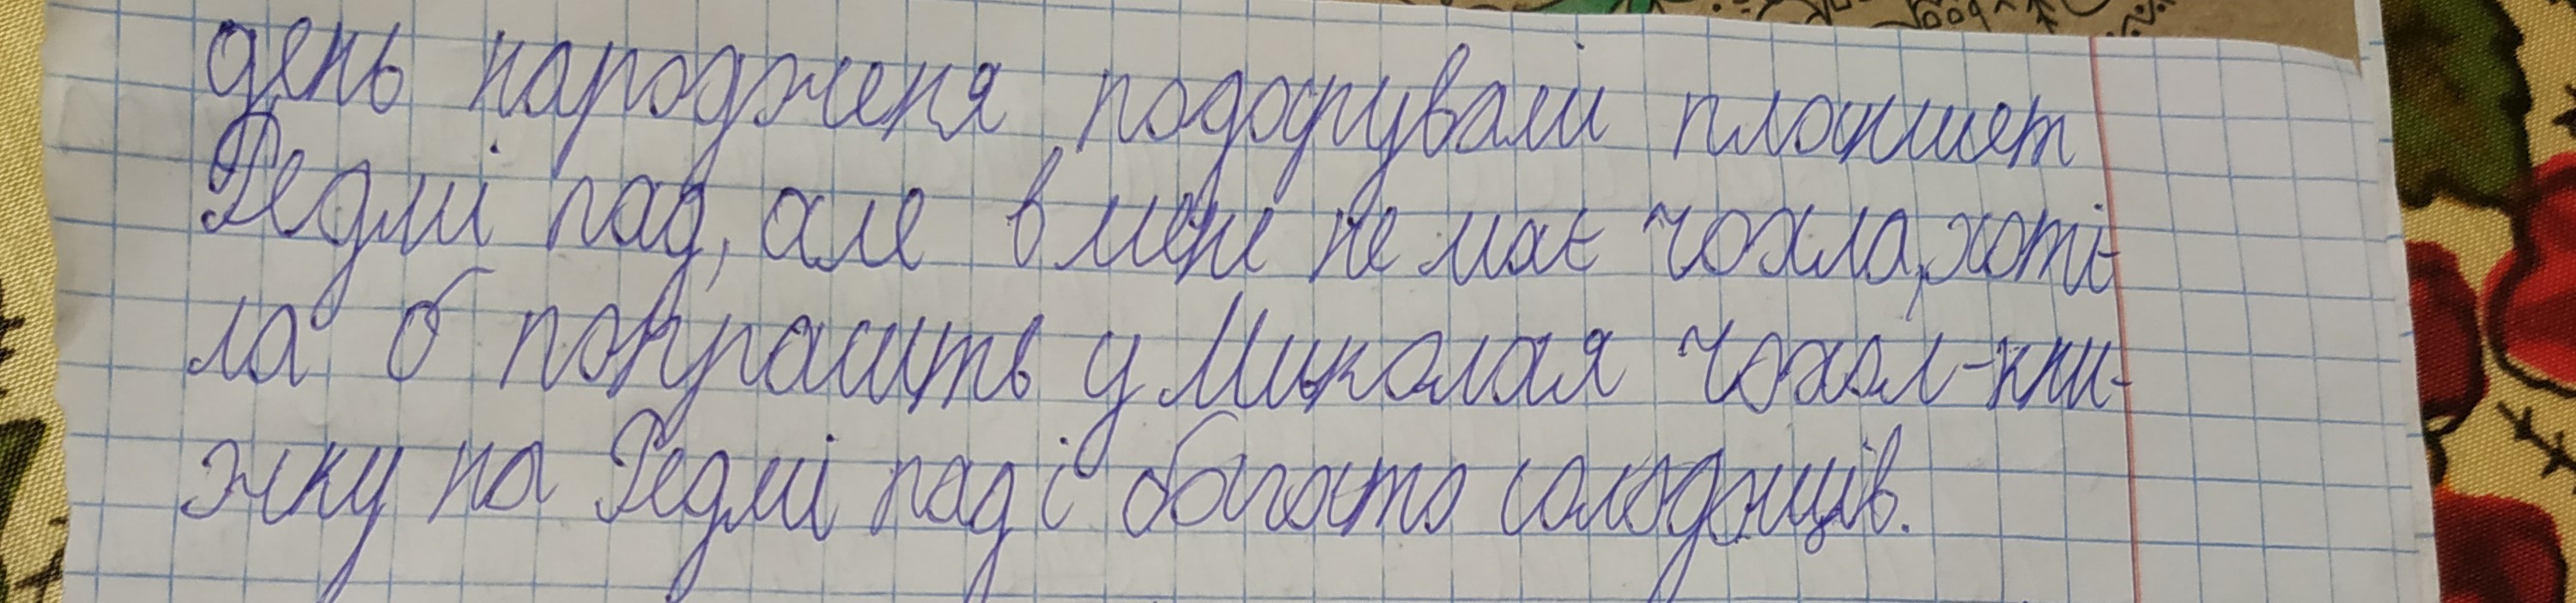 день народженя подарували планшет
Редмі пад, але в мене не має чохла, хоті-
ла б попрасить у Миколая чохол-кни-
жку на Редмі пад і багато солодощів.